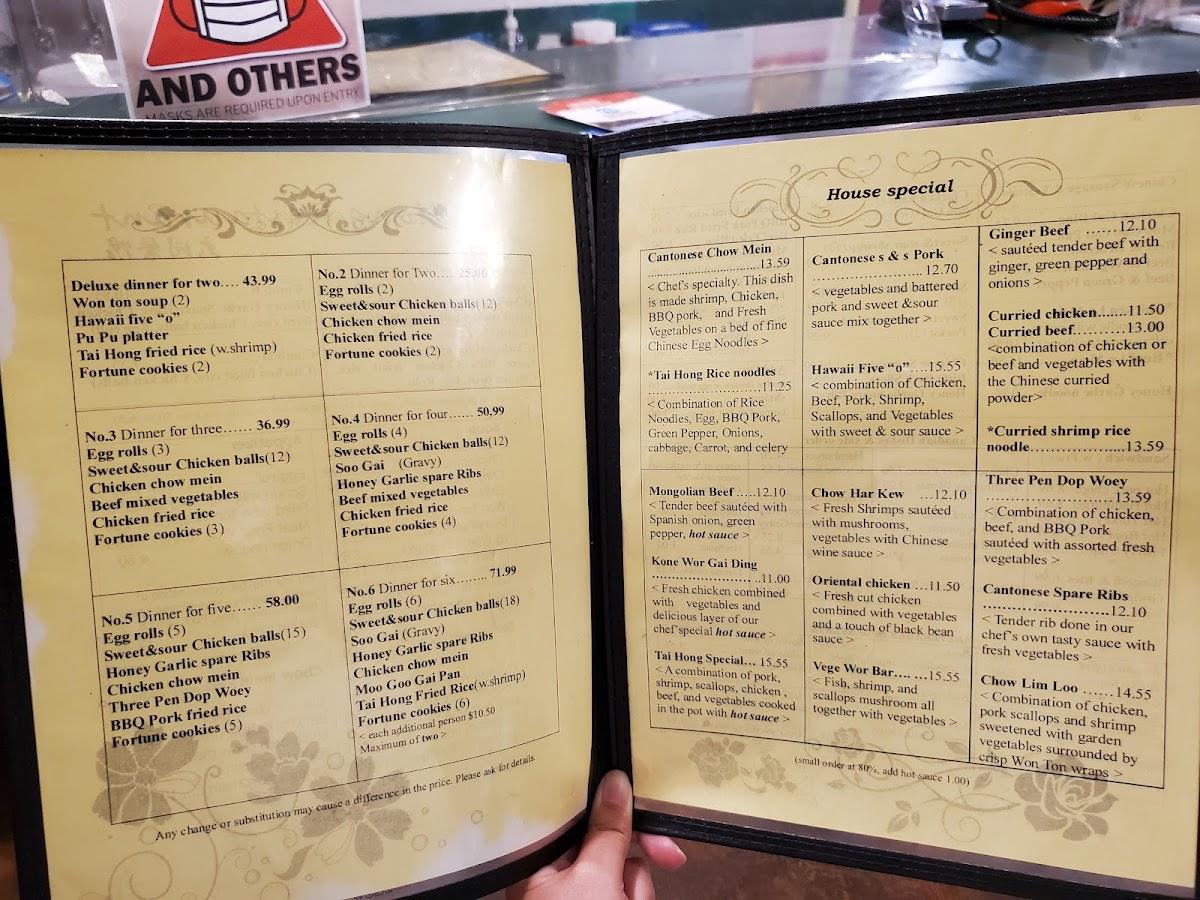 AND OTHERS
MASKS ARE REQUIRED UPON ENTRY
Deluxe dinner for two.... 43.99
Won ton soup (2)
Hawaii five “o”
Pu Pu platter
Tai Hong fried rice (w.shrimp)
Fortune cookies (2)
No.2 Dinner for Two.... 25.00
Egg rolls (2)
Sweet&sour Chicken balls(12)
Chicken chow mein
Chicken fried rice
Fortune cookies (2)
No.3 Dinner for three...... 36.99
Egg rolls (3)
Sweet&sour Chicken balls(12)
Chicken chow mein
Beef mixed vegetables
Chicken fried rice
Fortune cookies (3)
No.4 Dinner for four...... 50.99
Egg rolls (4)
Sweet&sour Chicken balls(12)
Soo Gai (Gravy)
Honey Garlic spare Ribs
Beef mixed vegetables
Chicken fried rice
Fortune cookies (4)
No.5 Dinner for five...... 58.00
Egg rolls (5)
Sweet&sour Chicken balls(15)
Honey Garlic spare Ribs
Chicken chow mein
Three Pen Dop Woey
BBQ Pork fried rice
Fortune cookies (5)
No.6 Dinner for six........ 71.99
Egg rolls (6)
Sweet&sour Chicken balls(18)
Soo Gai (Gravy)
Honey Garlic spare Ribs
Chicken chow mein
Moo Goo Gai Pan
Tai Hong Fried Rice(w.shrimp)
Fortune cookies (6)
< each additional person $10.50
Maximum of two >
Any change or substitution may cause a difference in the price. Please ask for details.
House special
Cantonese Chow Mein
..............................13.59
< Chef's specialty. This dish
is made shrimp, Chicken,
BBQ pork, and Fresh
Vegetables on a bed of fine
Chinese Egg Noodles >
*Tai Hong Rice noodles
..............................11.25
< Combination of Rice
Noodles, Egg, BBQ Pork,
Green Pepper, Onions,
cabbage, Carrot, and celery
Cantonese s & s Pork
.......................... 12.70
< vegetables and battered
pork and sweet &sour
sauce mix together >
Hawaii Five “o”....15.55
< combination of Chicken,
Beef, Pork, Shrimp,
Scallops, and Vegetables
with sweet & sour sauce >
Ginger Beef ......12.10
< sautéed tender beef with
ginger, green pepper and
onions >
Curried chicken.......11.50
Curried beef..........13.00
<combination of chicken or
beef and vegetables with
the Chinese curried
powder>
*Curried shrimp rice
noodle..................13.59
Mongolian Beef .....12.10
< Tender beef sautéed with
Spanish onion, green
pepper, hot sauce >
Kone Wor Gai Ding
.......................... ..11.00
< Fresh chicken combined
with vegetables and
delicious layer of our
chef'special hot sauce >
Tai Hong Special... 15.55
< A combination of pork,
shrimp, scallops, chicken ,
beef, and vegetables cooked
in the pot with hot sauce >
Chow Har Kew ...12.10
< Fresh Shrimps sautéed
with mushrooms,
vegetables with Chinese
wine sauce >
Oriental chicken ...11.50
< Fresh cut chicken
combined with vegetables
and a touch of black bean
sauce >
Vege Wor Bar.... ...15.55
< Fish, shrimp, and
scallops mushroom all
together with vegetables >
Three Pen Dop Woey
..........................13.59
< Combination of chicken,
beef, and BBQ Pork
sautéed with assorted fresh
vegetables >
Cantonese Spare Ribs
..........................12.10
< Tender rib done in our
chef's own tasty sauce with
fresh vegetables >
Chow Lim Loo ......14.55
< Combination of chicken,
pork scallops and shrimp
sweetened with garden
vegetables surrounded by
crisp Won Ton wraps >
(small order at 80%, add hot sauce 1.00)